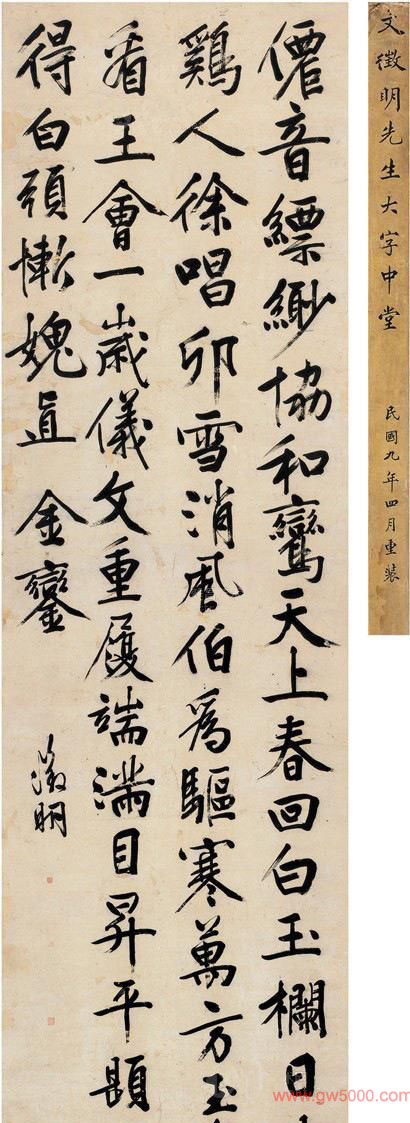 文徵明先生大字中堂
民國九年四月重裝
僊音縹緲協和鸞天上春回白玉欄日
鷄人徐唱卯雪消風伯爲驅寒萬方玉
看王會一歲儀文重履端滿目昇平題
得白頭慚媿直金鑾
徵明
www.gw5000.com